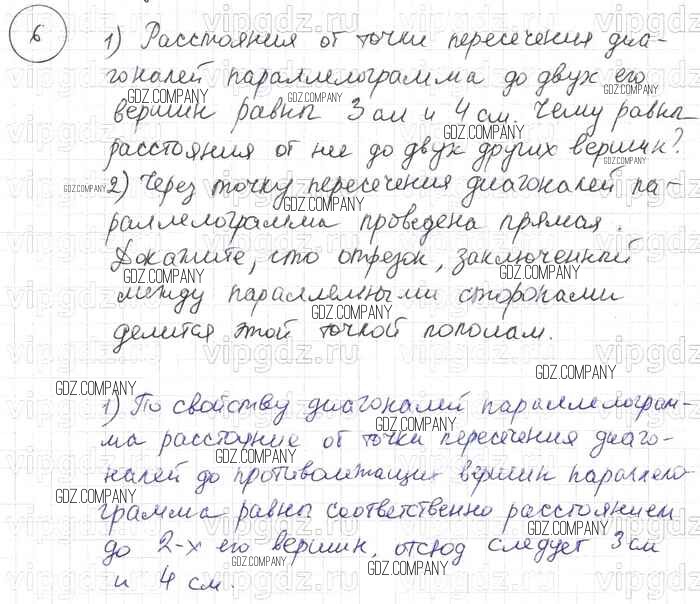 6
1) Расстояния от точки пересечения диа-
гоналей параллелограмма до двух его
вершин равны 3 см и 4 см. Чему равны
расстояния от нее до двух других вершин?
2) Через точку пересечения диагоналей па-
раллелограмма проведена прямая.
Докажите, что отрезок, заключенный
между параллельными сторонами
делится этой точкой пополам.
1) По свойству диагоналей параллелограм-
ма расстояние от точки пересечения диаго-
налей до противолежащих вершин параллело-
грамма равны соответственно расстояниям
до 2-х его вершин, отсюд следует 3 см
и 4 см.
GDZ.COMPANY
vipgdz.ru